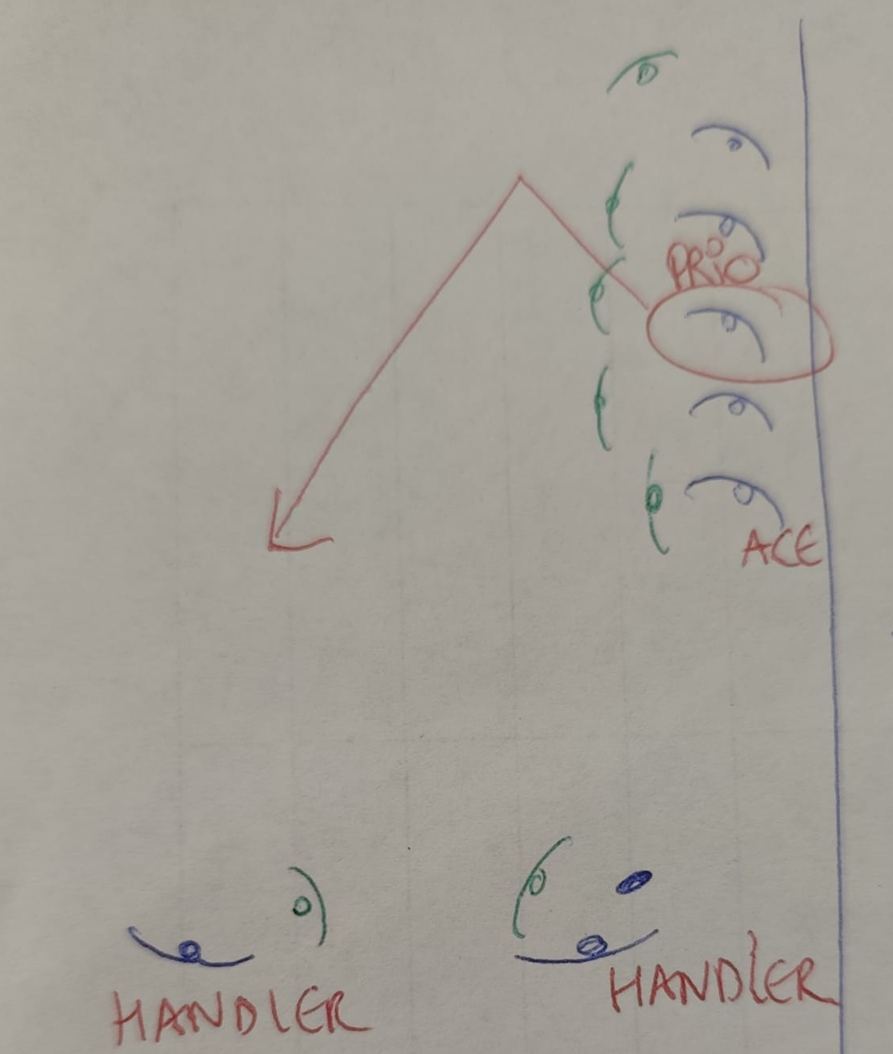 PRIO
ACE
HANDLER
HANDLER